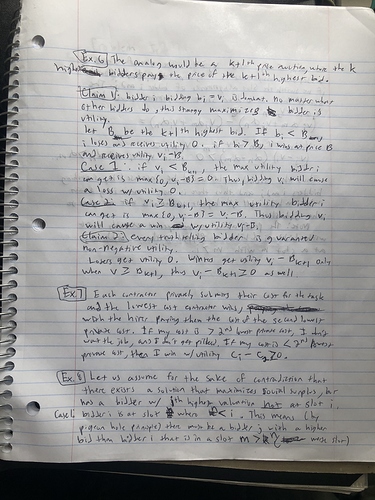 Ex. 6 The analog would be a k+1th price auction where the k
highest bidders pay the price of the k+1th highest bid.
Claim 1: bidder i bidding bi = vi is dominant. No matter what
other bidders do, this strategy maximizes bidder i's
utility.
let B be the k+1th highest bid. If bi < B
i loses and receives utility 0. if bi > B, i wins at price B
and receives utility vi - B.
Case 1: if vi < B, the max utility bidder i
can get is max{0, vi-B} = 0. Thus, bidding vi will cause
a loss w/ utility 0.
Case 2: if vi ≥ B, the max utility bidder i
can get is max{0, vi-B} = vi-B. Thus bidding vi
will cause a win w/ utility vi-B.
Claim 2: every truthtelling bidder is guaranteed
non-negative utility.
Losers get utility 0. Winners get utility vi - Bk+1 only
when vi ≥ Bk+1, thus vi - Bk+1 ≥ 0 as well.
Ex. 7 Each contractor privately submits their cost for the task
and the lowest cost contractor wins,
with the hirer paying them the cost of the second lowest
private cost. If my cost is > 2nd lowest private cost, I don't
want the job, and I don't get picked. If my cost is < 2nd lowest
private cost, then I win w/ utility
Ex. 8 Let us assume for the sake of contradiction that
there exists a solution that maximizes social surplus, but
has a bidder w/ ith highest valuation not at slot i.
Case 1: bidder i is at slot when < i. This means (by
pigeon hole principle) there must be a bidder j with a higher
bid than bidder i that is in a slot m > worse slot)